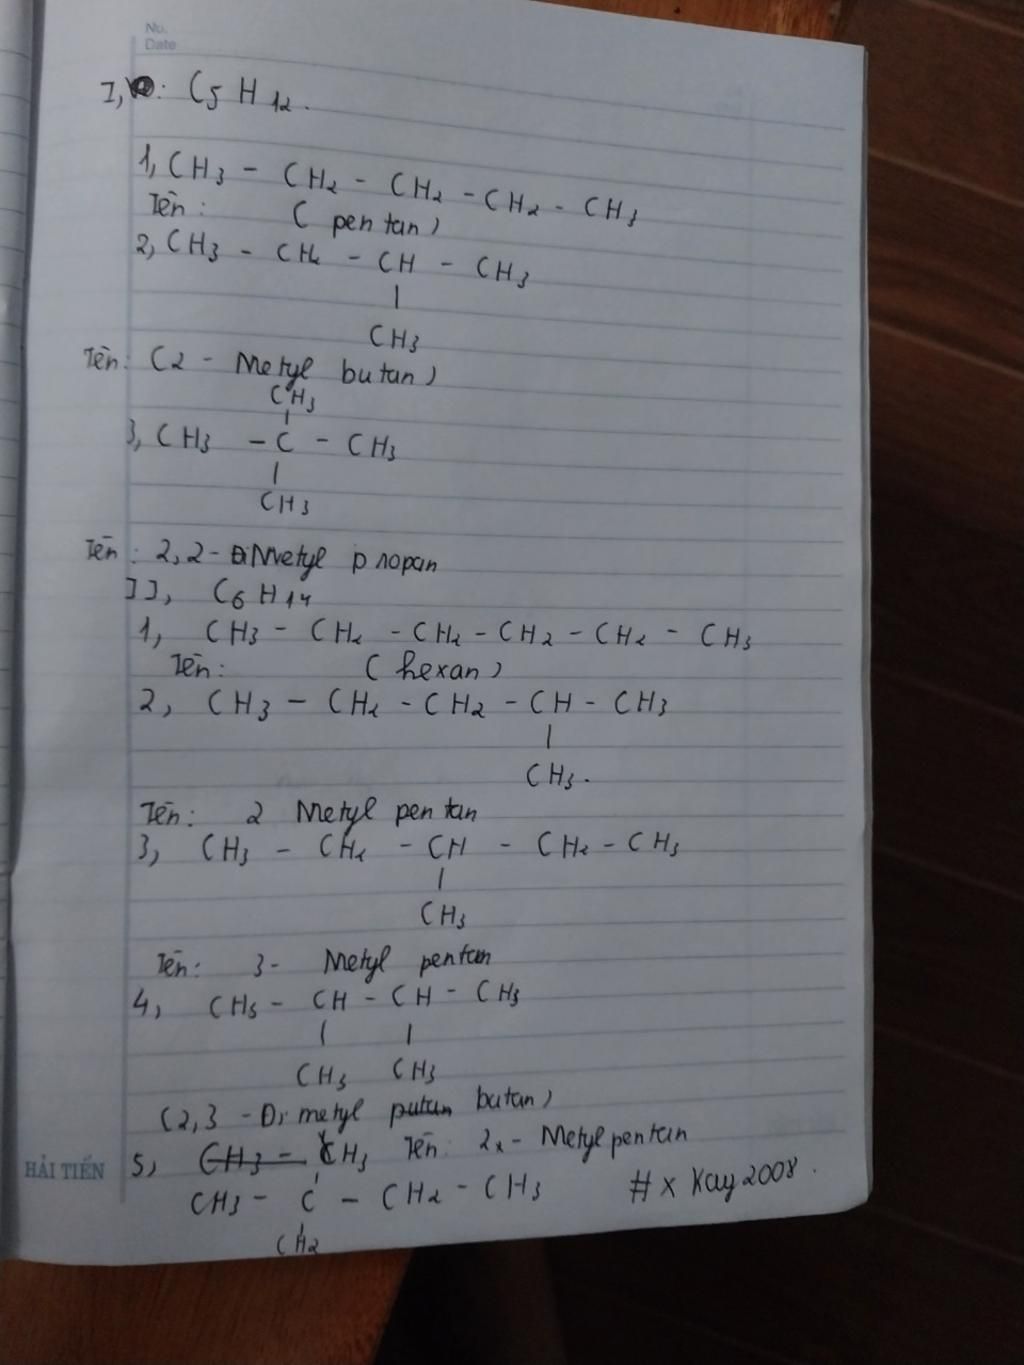 No.
Date
I, : C5H12.
1, CH3 - CH2 - CH2 - CH2 - CH3
Tên: (pentan)
2, CH3 - CH2 - CH - CH3
|
CH3
Tên: (2 - Metyl butan)
CH3
|
3, CH3 - C - CH3
|
CH3
Tên: 2,2 - ĐiMetyl propan
II, C6H14
1, CH3 - CH2 - CH2 - CH2 - CH2 - CH3
Tên: (hexan)
2, CH3 - CH2 - CH2 - CH - CH3
|
CH3.
Tên: 2 Metyl pentan
3, CH3 - CH2 - CH - CH2 - CH3
|
CH3
Tên: 3 - Metyl pentan
4, CH3 - CH - CH - CH3
| |
CH3 CH3
(2,3 - Đi metyl butan)
5, CH3 - CH3 Tên: 2x - Metyl pentan
CH3 - C - CH2 - CH3 # x Kay2008.
|
CH2
HẢI TIẾN